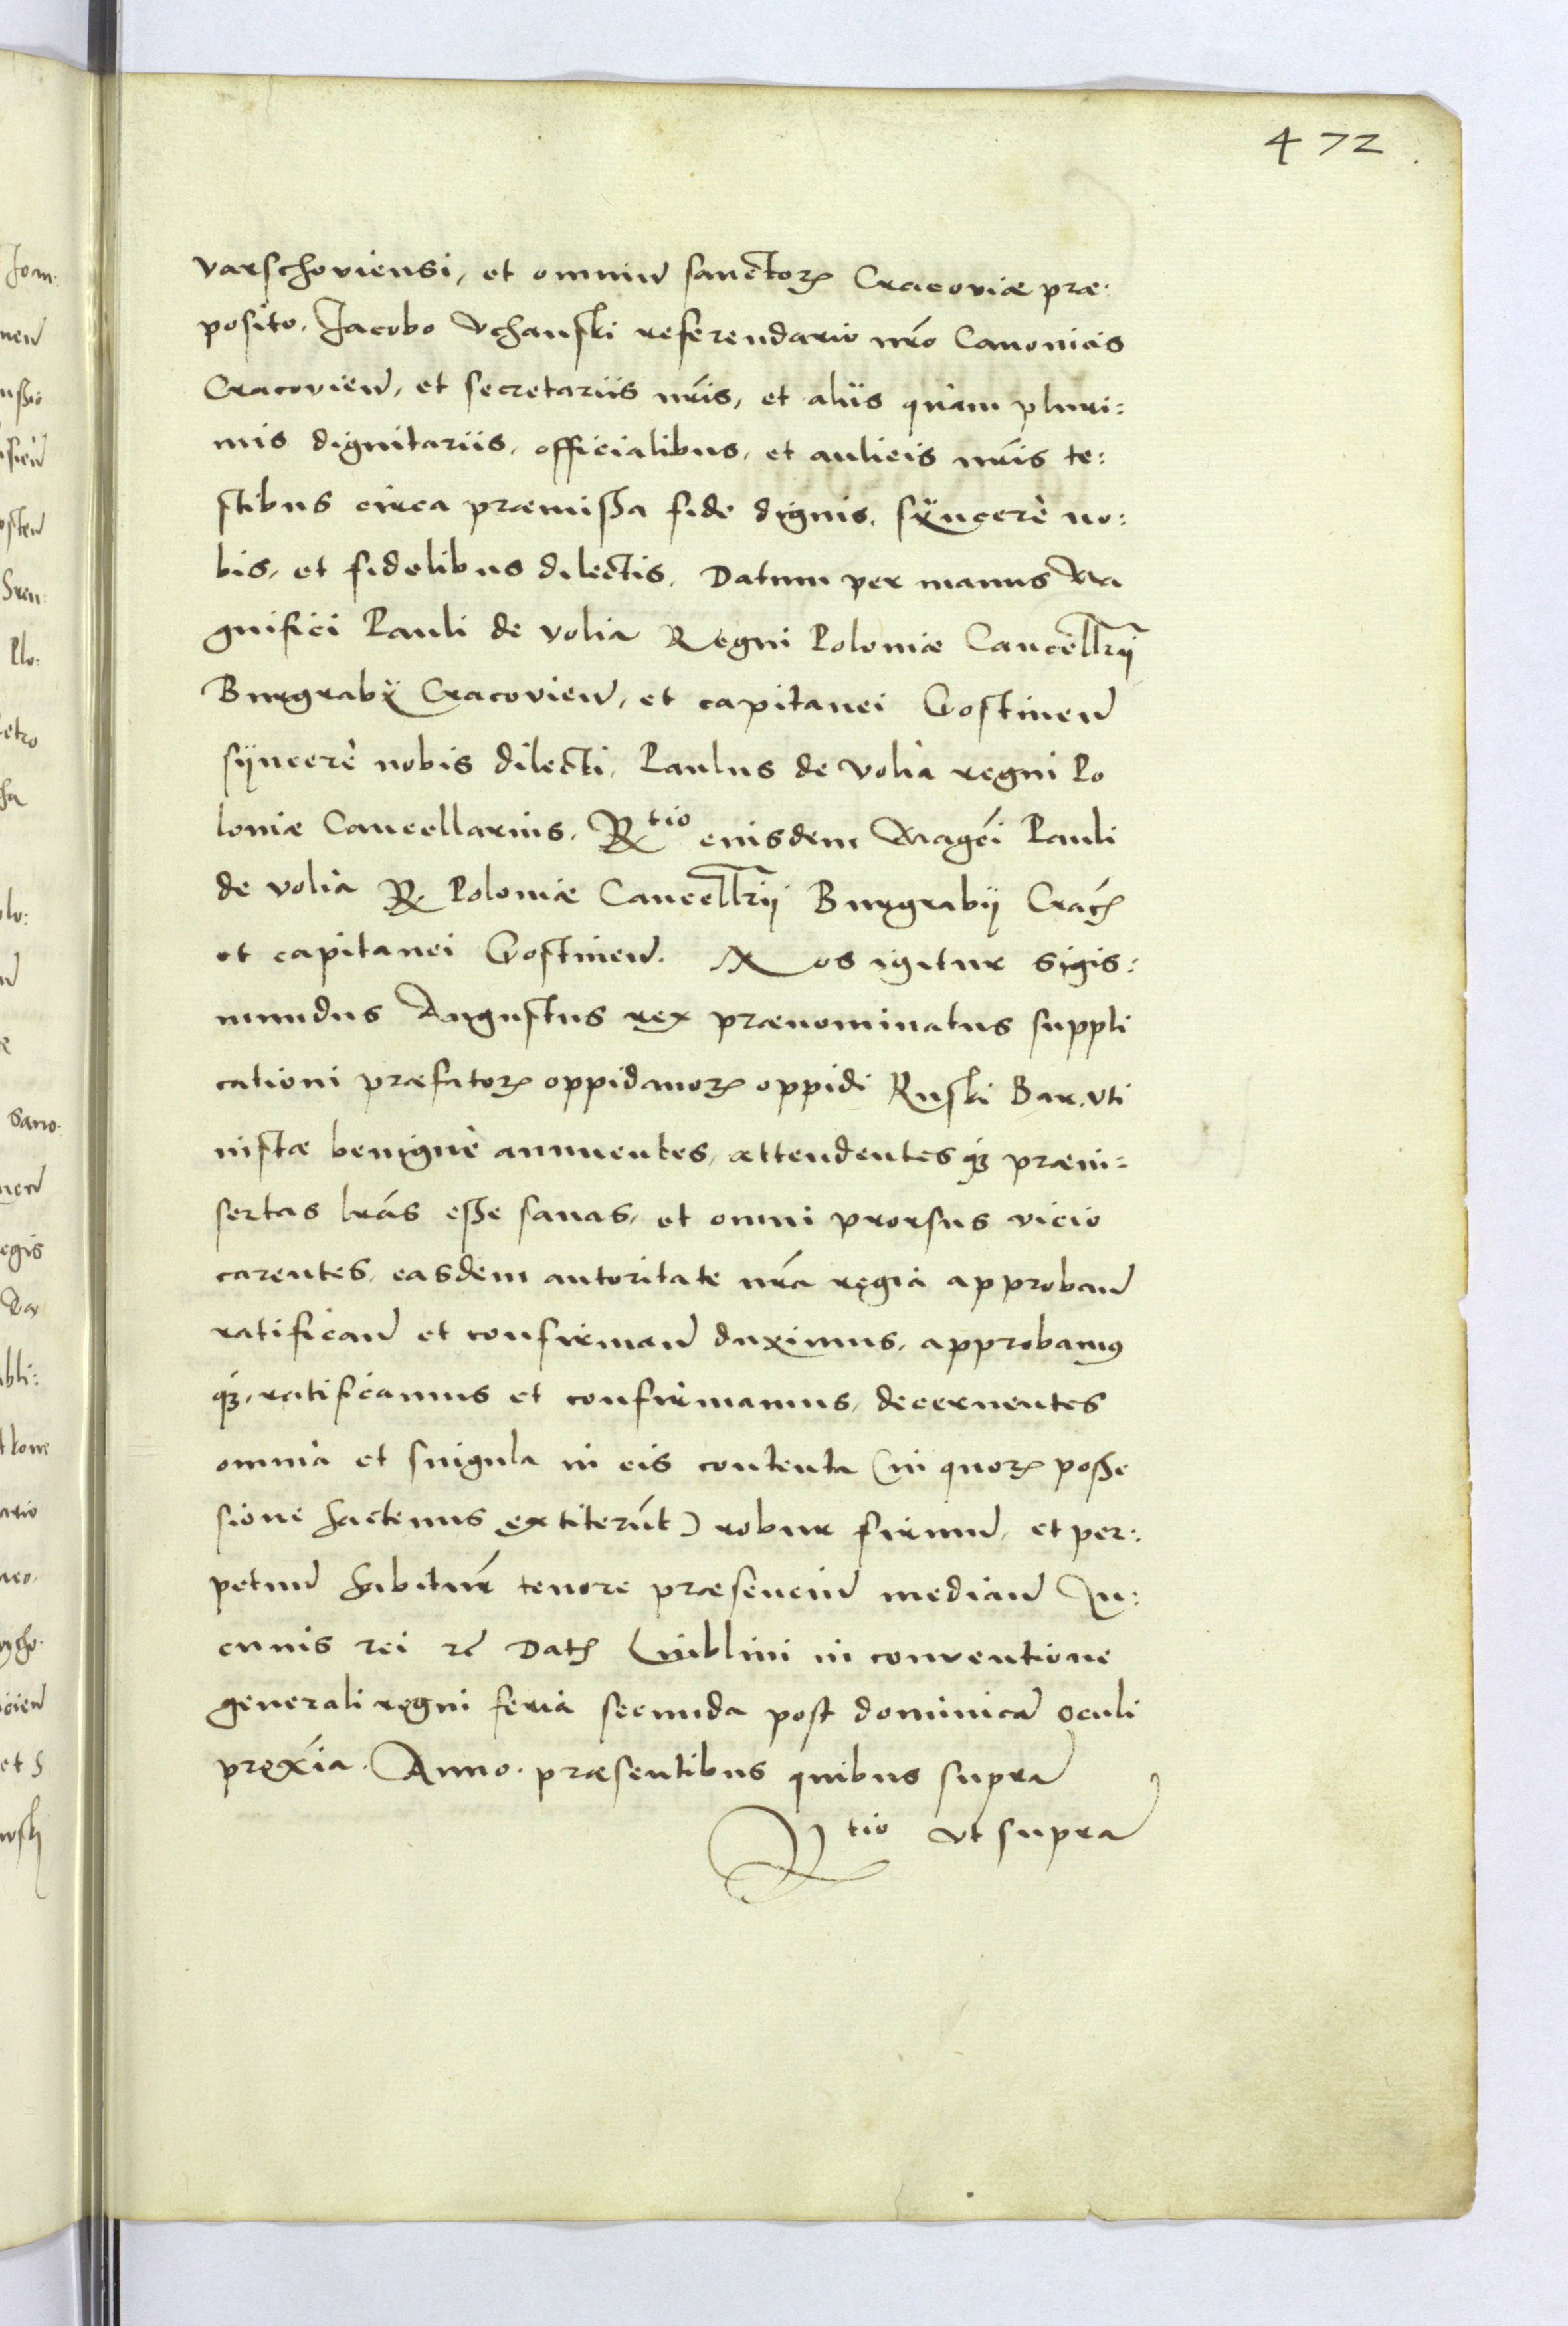 472
varschoviensi, et omniū sanctoꝝ Cracoviæ præ:
posito. Jacobo Vchanski referendario nr̃o Canonicis
Cracovień, et secretariis nr̃is, et aliis quàm pluri:
mis dignitariis, officialibus, et aulicis nr̃is te:
stibus circa præmissa fide dignis, sÿncerè no:
bis, et fidelibus dilectis. Datum per manus Ma
gnifici Pauli de volia Regni Poloniæ Cancellrÿ
Burgrabÿ Cracovień, et capitanei Gostineń
sÿncerè nobis dilecti. Paulus de volia regni Po
loniæ Cancellarius. Rtio eiusdem Magci Pauli
de volia R Poloniæ Cancellrii Burgrabii Crac
et capitanei Gostineń. Nos igitur Sigis:
mundus Augustus rex prænominatus suppli
cationi præfatoꝝ oppidanoꝝ oppidi Ruski Bar, vti
iustæ benignè annuentes, attendentes qȝ præin=
sertas lr̃as esse sanas, et omni prorsus vicio
carentes, easdem autoritate nr̃a regia approbań
ratificań et confirmań duximus, approbamus
qȝ, ratificamus et confirmamus, decernentes
omnia et singula in eis contenta (in quoꝝ posse
sione hactenus extiterūt) robur firmū, et per:
petuū hr̃e bitur tenore præsenciū mediań In:
cuius rei rc̃ Datꝭ Lublini in conventione
generali regni feria secunda post dominicā oculi
proxĩa. Anno. præsentibus quibus supra
Rtio vt supra